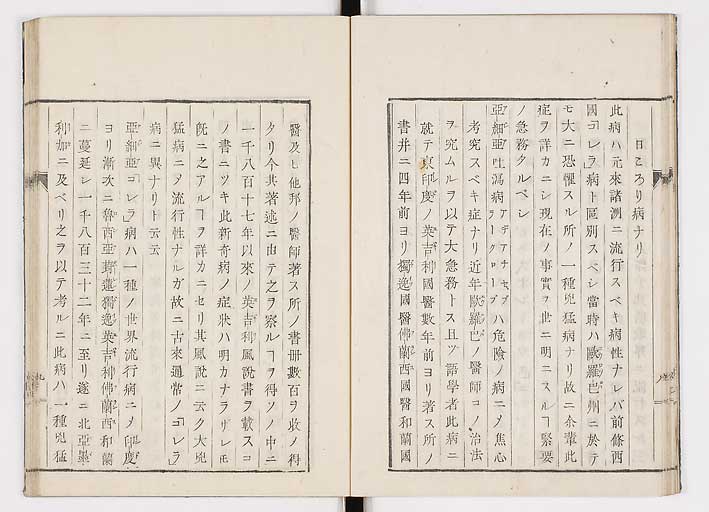 日ころり病ナリ
此病ハ元來諸洲ニ流行スベキ病性ナレバ前條西
國「コレラ」病ト區別スベシ當時ハ歐羅巴州ニ於テ
モ大ニ恐懼スル所ノ一種兇猛病ナリ故ニ余輩此
症ヲ詳カニシ現在ノ事實ヲ世ニ明ニスルヿ緊要
ノ急務タルベシ
亞細亞吐瀉病ハ危險ノ病ニ〆焦心
アヂアチセブ
ラークローブ
考究スベキ症ナリ近年歐羅巴ノ醫師コノ治法
ヲ究ムルヲ以テ大急務トス且ツ語學者此病ニ
就テ東印度ノ英吉利國醫數年前ヨリ著ス所ノ
書并ニ四年前ヨリ獨逸國醫佛蘭西國醫和蘭國
醫及ヒ他邦ノ醫師著ス所ノ書册數百ヲ收ノ得
タリ今其著述ニ由テ之ヲ察ルヿヲ得ソノ中ニ
一千八百十七年以來ノ英吉利風説書ヲ載スコ
ノ書ニツキ此新奇病ノ症狀ハ明カナラザレ𪜈
既ニ之アルヿヲ詳カニセリ其風説ニ云ク大兇
猛病ニ〆流行性ナルガ故ニ古來通常ノ「コレラ」
病ニ異ナリト云云
亞細亞「コレラ」病ハ一種ノ世界流行病ニ〆印度
ヨリ漸次ニ魯西亞獨逸英吉利佛蘭西和蘭
ニ蔓延レ一千八百三十二年ニ至リ遂ニ北亞墨
利加ニ及ベリ之ヲ以テ考ルニ此病ハ一種兇猛